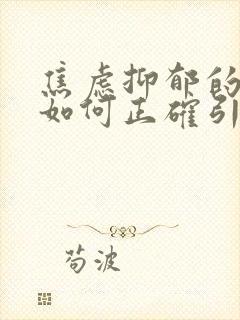 焦虑抑郁的
如何正確引
苟波